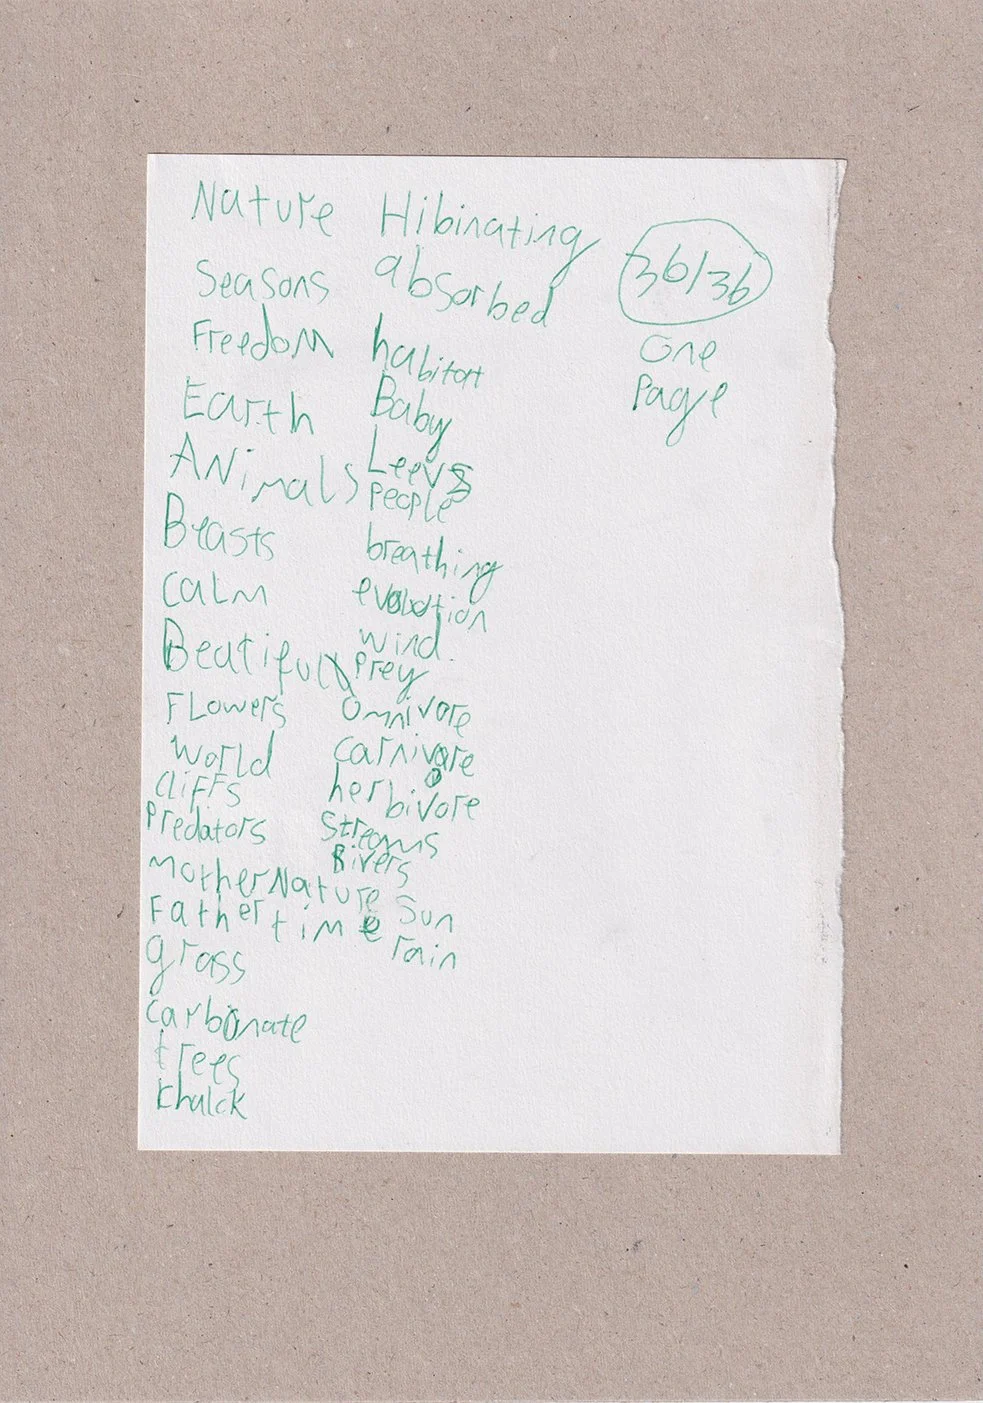 Nature
Seasons
Freedom
Earth
ANimals
Beasts
calm
Beatiful
FLowers
world
cliffs
Predators
mother Nature
Father time
grass
carbonate
trees
khalck
Hibinating
absorbed
habitat
Baby
Leevs
People
breathing
evolotion
wind
Prey
omnivore
carnivore
herbivore
Streams
Rivers
Sun
rain
36/36
One
Page